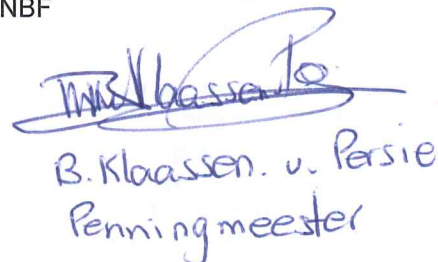 NBF
B. Klaassen. v. Persie
Penningmeester